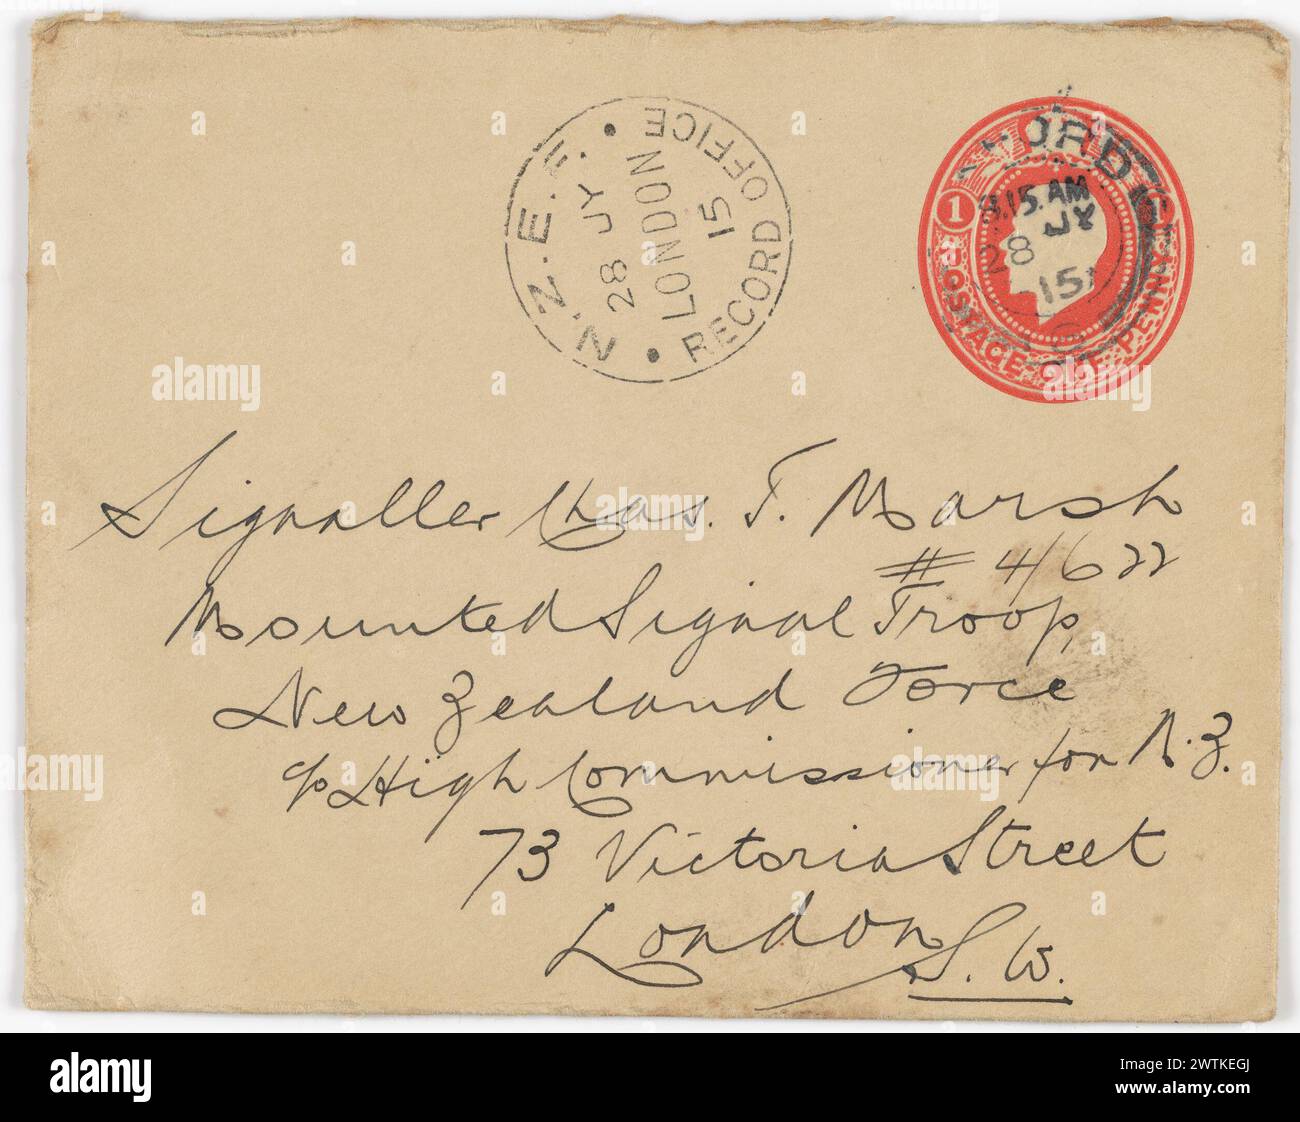 N.Z.E.F.
28 JY
LONDON
15
RECORD OFFICE
8.15.AM
28 JY
15
1
POSTAGE ONE PENNY
Signaller Chas. T. Marsh
# 4/622
Mounted Signal Troop,
New Zealand Force
c/o High Commissioner for N.Z.
73 Victoria Street
London
S.W.
alamy
alamy
Image ID: 2WTKEGJ
www.alamy.com